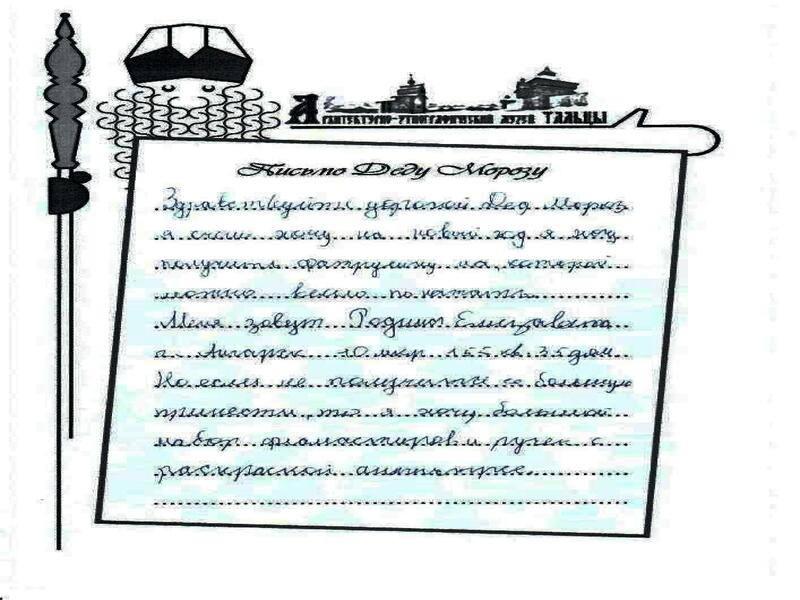 Архитектурно-этнографический музей ТАЛЬЦЫ
Письмо Деду Морозу
Здравствуйти дорогой Дед Мороз
я хочу на новый год я хочу
получить ватрушку на которой
можно весло покатать
Меня зовут Родина Елизавета
г. Ангарск 10 мкр 155 кв 35 дом
Но если не получится большую
принести, то я хочу большой
набор фломастиров и ручек с
раскраской антистрес